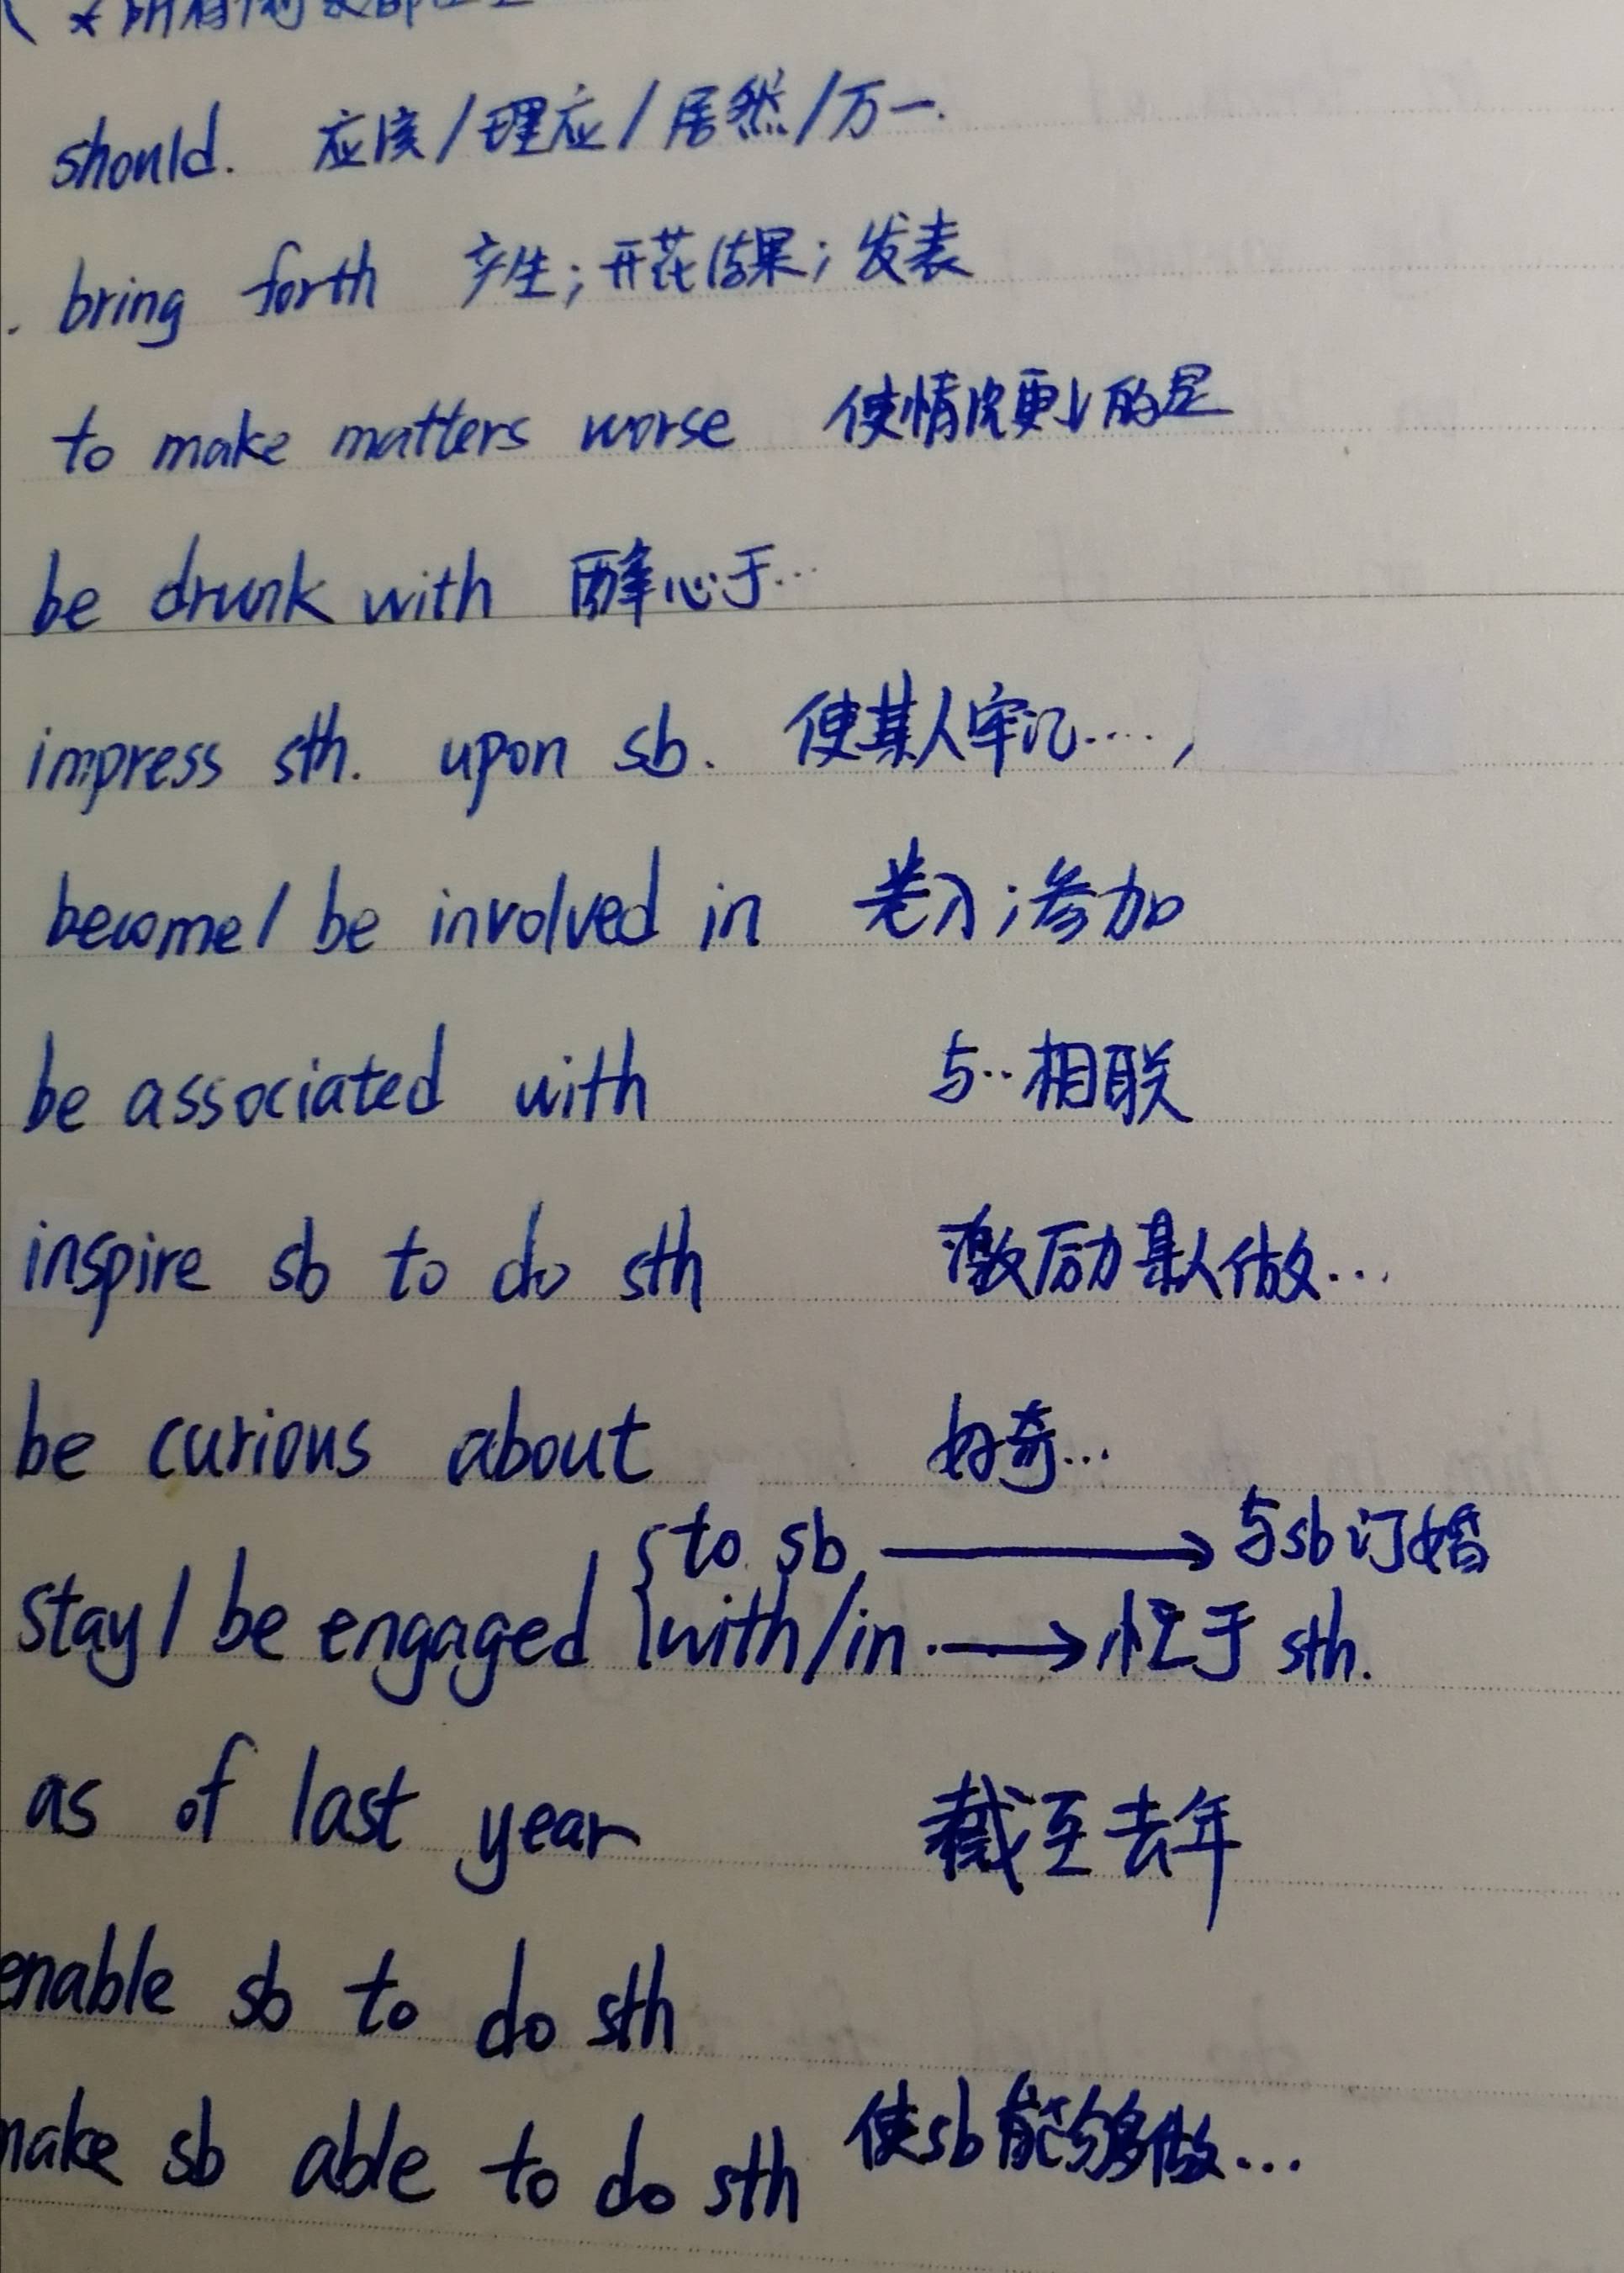 should. 应该/理应/居然/万一.
. bring forth 产生;开花结果;发表
to make matters worse 使情况更的是
be drunk with 醉心于...
impress sth. upon sb. 使某人牢记....,
become/ be involved in 卷入;参加
be associated with 与..相联
inspire sb to do sth 激励某人做...
be curious about 好奇...
stay/ be engaged { to sb. → 与sb订婚
with/in. → 忙于 sth.
as of last year 截至去年
enable sb to do sth
make sb able to do sth 使sb能够做...